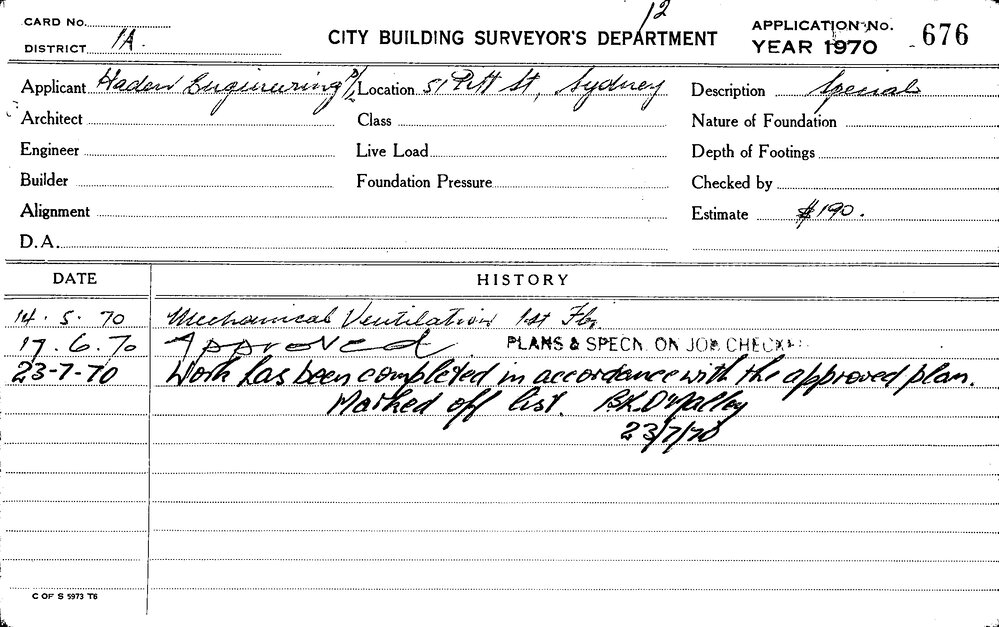 12
CARD No.
DISTRICT 1A.
CITY BUILDING SURVEYOR'S DEPARTMENT
APPLICATION No. 676
YEAR 1970
Applicant Haden Engineering P/L Location 51 Pitt St, Sydney Description Special
Architect Class Nature of Foundation
Engineer Live Load Depth of Footings
Builder Foundation Pressure Checked by
Alignment Estimate $190.
D.A.
DATE HISTORY
14.5.70 Mechanical Ventilation 1st Flr.
17.6.70 Approved PLANS & SPECN. ON JOB CHECKED
23-7-70 Work has been completed in accordance with the approved plan.
Marked off list. B.K. O'Malley
23/7/70
C OF S 5973 T6